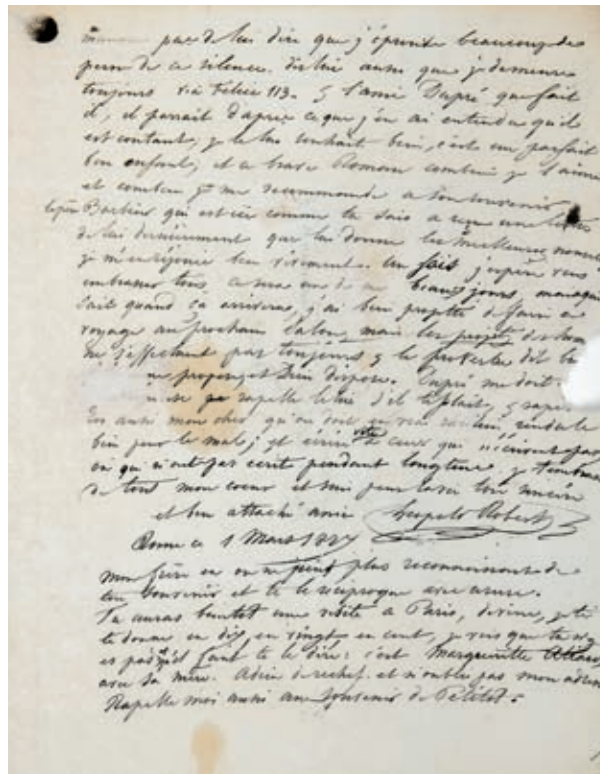 pas de lui dire que j'éprouve beaucoup de
peine de ce silence. dis lui aussi que je demeure
toujours via felice 113. & l'ami Dupré que fait
il, il parrait d'après ce que j'en ai entendu qu'il
est contant, je le lui souhait bien, c'est un parfait
bon enfant; et ce brave Romain combien je l'aime
et combien je me recommande a son souvenir
le père Barbier qui est ici comme tu sais a reçu une lettre
de lui dernièrement que lui donne les meilleures
je m'en réjouie bien vivement. un fois j'espère vous
embrasser tous, ce sera un de mes beaux jours, mais qui
sait quand ça arriveras, j'ai bien projetté de faire ce
voyage au prochain Salon, mais les projets
ne s'effectuent pas toujours & le proverbe dit
me propose, et Dieu dispose. Dupré me doit
rapelle le lui s'il te plait, &
aussi mon cher qu'on doit rendre le
bien pour le mal; et écrire vite a ceux qui n'écrivent pas
ou qui n'ont pas ecrit pendant longtems je t'embrasse
de tout mon coeur et suis pour la vie ton sincère
et bien attaché amie Leopold Robert
Rome ce 1 Mars 1827
mon frère on ne peint plus reconnaissant de
ton souvenir et te le réciproque avec usure.
Tu auras bientot une visite a Paris, devine, je te
le donne en dix, en vingt en cent, je vois que tu n'y
es pas, qu'il faut te le dire: c'est Marguerite
avec sa mère. Adieu derechef. et n'oublie pas mon adresse
Rapelle moi aussi au souvenir de Petitot.